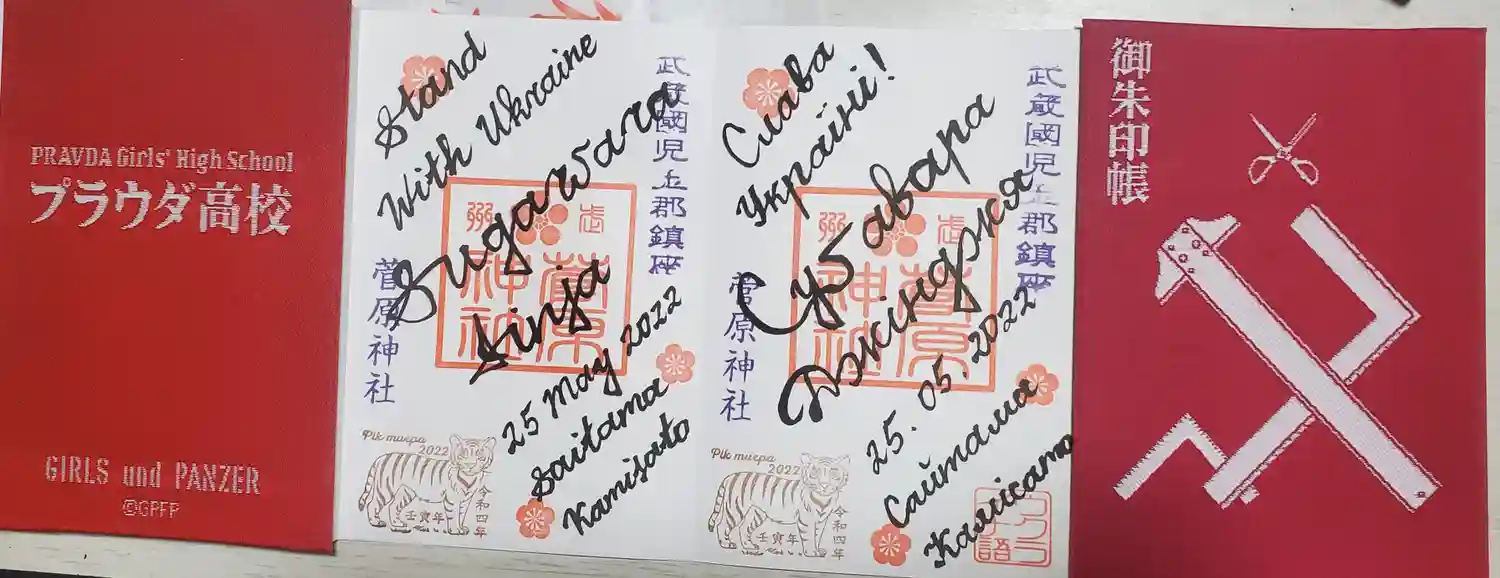 PRAVDA Girls' High School
プラウダ高校
GIRLS und PANZER
©GPFP
武蔵國児玉郡鎮座
Stand
With Ukraine
Sugawara
Jinja
25 May 2022
Saitama
Kamisato
菅原神社
菅原
神社
Рік тигра
2022
令和四年
壬寅年
武蔵國児玉郡鎮座
Слава
Україні!
Сугавара
Джінджя
25.05.2022
Сайтама
Камісато
菅原神社
菅原
神社
Рік тигра
2022
令和四年
壬寅年
御朱印帳